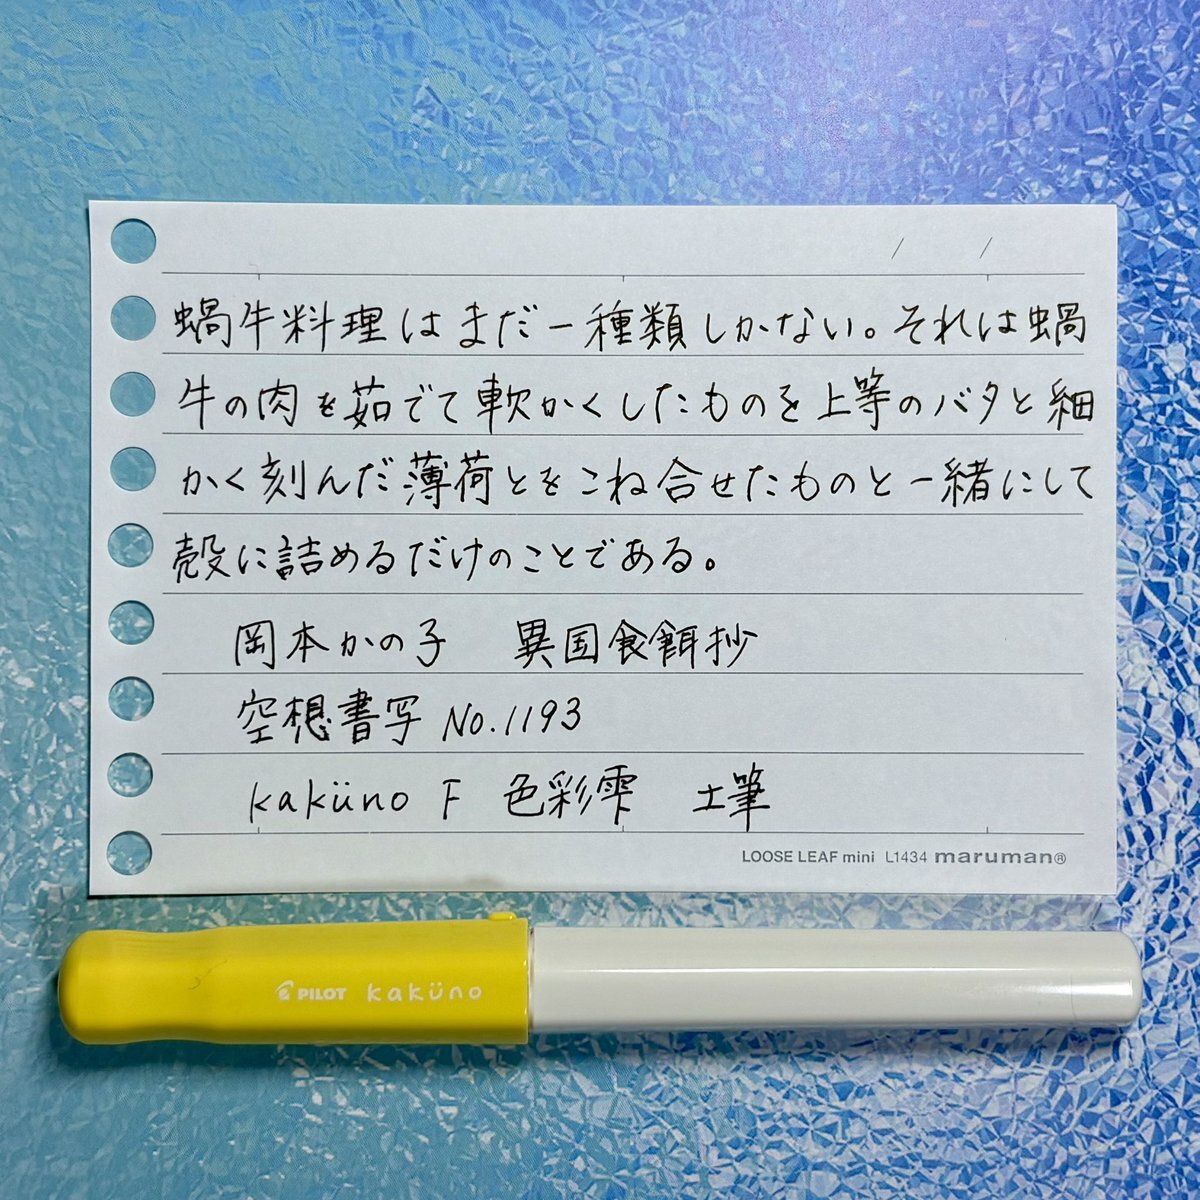 / /
蝸牛料理はまだ一種類しかない。それは蝸
牛の肉を茹でて軟かくしたものを上等のバタと細
かく刻んだ薄荷とをこね合せたものと一緒にして
殻に詰めるだけのことである。
岡本かの子 異国食餌抄
空想書写 No.1193
kaküno F 色彩雫 土筆
LOOSE LEAF mini L1434 maruman®
PILOT kaküno